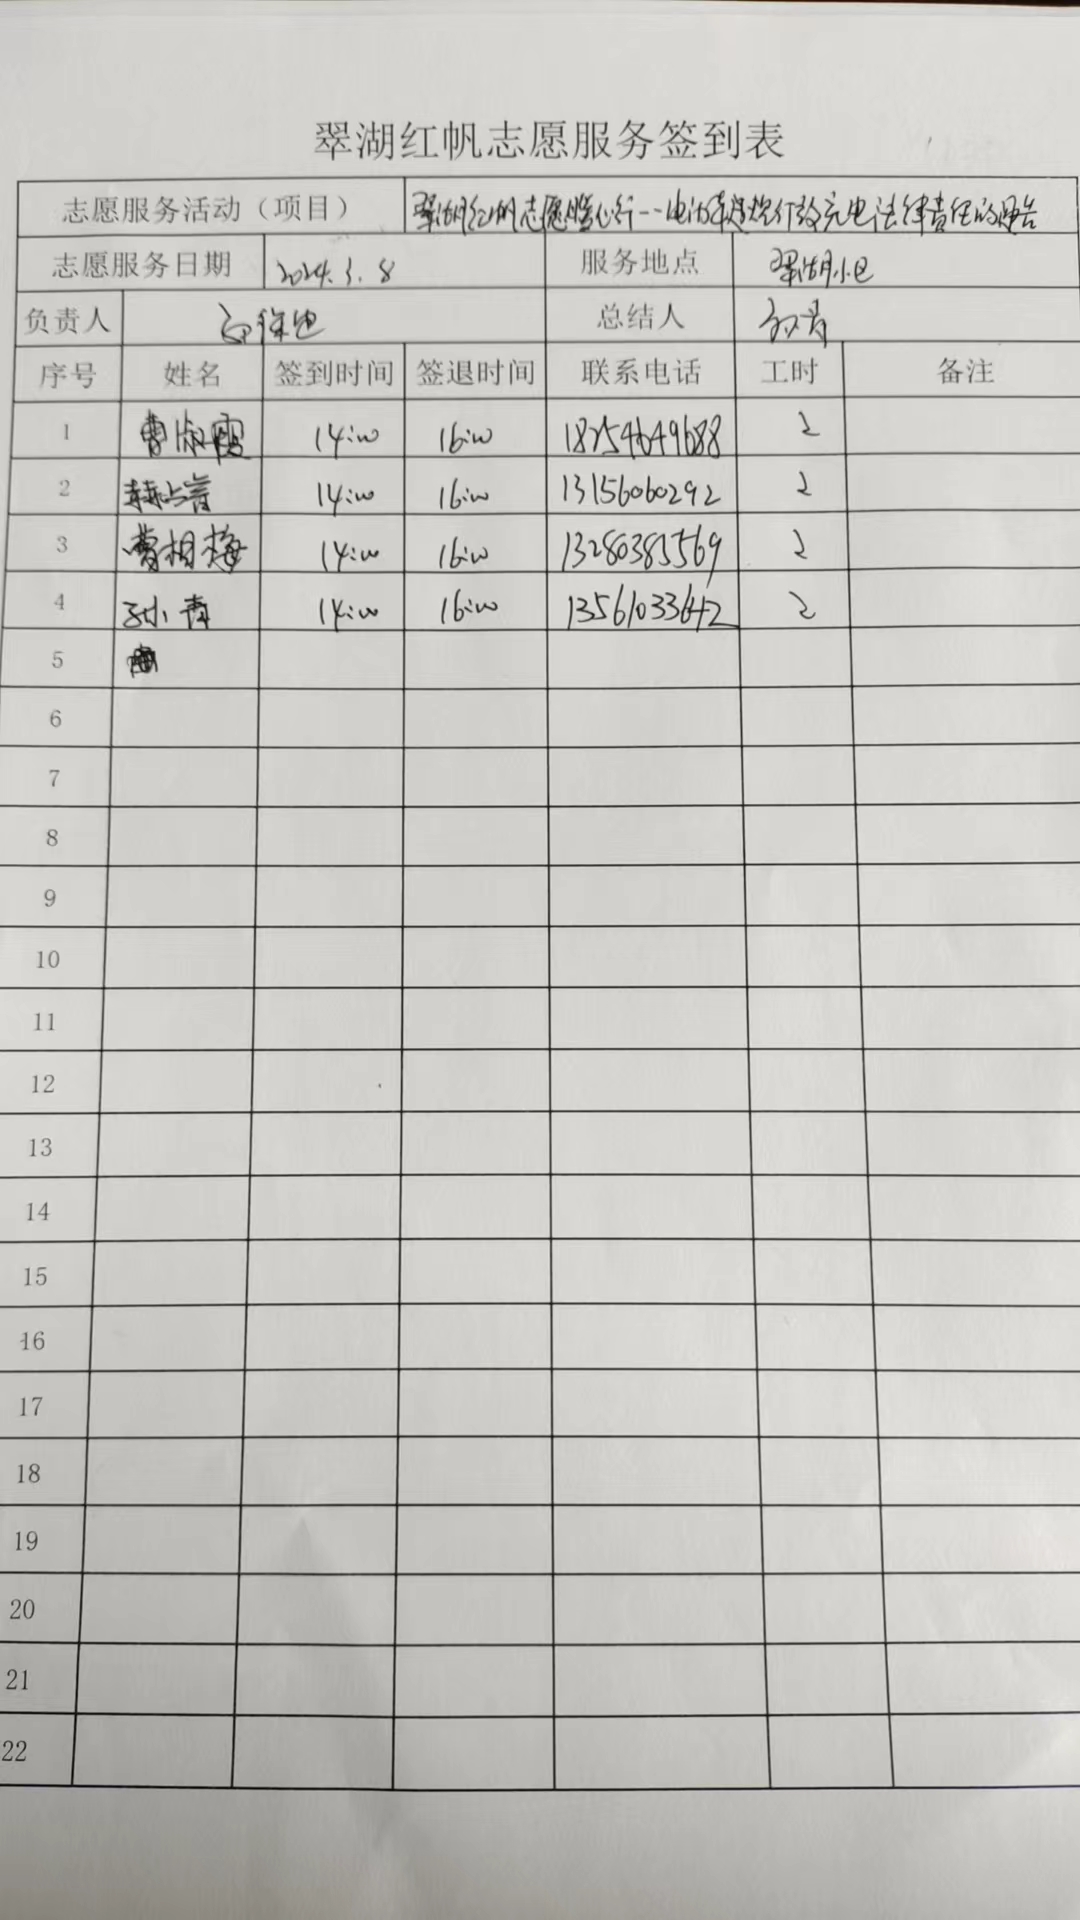 翠湖红帆志愿服务签到表
志愿服务活动（项目） 翠湖红帆志愿暖心行--电动车违规停放充电法律责任的通告
志愿服务日期 2024.3.8 服务地点 翠湖小区
负责人 总结人 孙青
序号 姓名 签到时间 签退时间 联系电话 工时 备注
1 曹淑霞 14:00 16:00 18254649688 2
2 14:00 16:00 13156060292 2
3 曹相梅 14:00 16:00 13280385569 2
4 孙青 14:00 16:00 13561033642 2
5
6
7
8
9
10
11
12
13
14
15
16
17
18
19
20
21
22